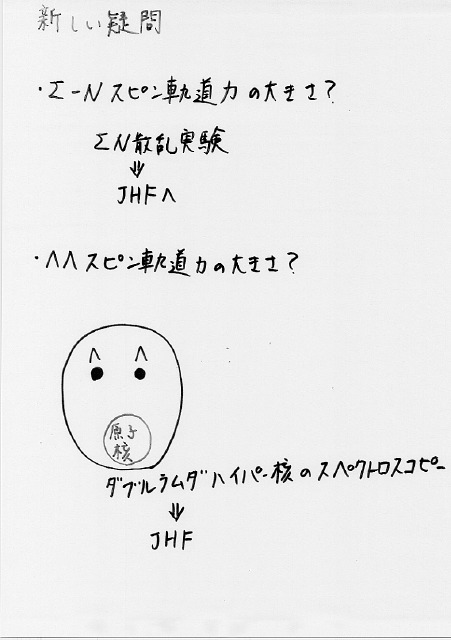 新しい疑問
・Σ-Nスピン軌道力の大きさ?
ΣN散乱実験
⇓
JHFへ
・ΛΛスピン軌道力の大きさ?
Λ Λ
原子
核
ダブルラムダハイパー核のスペクトロスコピー
⇓
JHF